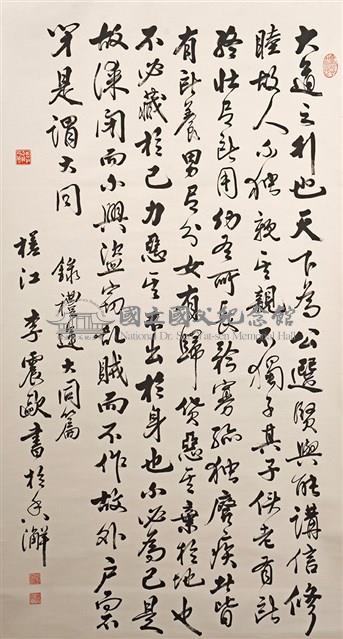 大道之行也天下為公選賢與能講信修
睦故人不獨親其親不獨子其子使老有所
終壯有所用幼有所長矜寡孤獨廢疾者皆
有所養男有分女有歸貨惡其棄於地也
不必藏於己力惡其不出於身也不必為己是
故謀閉而不興盜竊亂賊而不作故外戶而不
閉是謂大同
錄禮運大同篇
榕江 李震歐書於香澥
國立國父紀念館
National Dr. Sun Yat-sen Memorial Hall